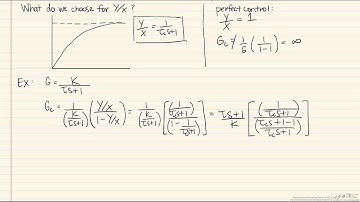 What do we choose for Y/X?
Y/X = 1/(τcs+1)
perfect control:
Y/X = 1
Gc = 1/G (1/(1-1)) = ∞
Ex: G = K/(τs+1)
Gc = 1/(K/(τs+1)) ((Y/X)/(1-Y/X)) = 1/(K/(τs+1)) [(1/(τcs+1))/(1-1/(τcs+1))] = (τs+1)/K [(1/(τcs+1))/((τcs+1-1)/(τcs+1))]